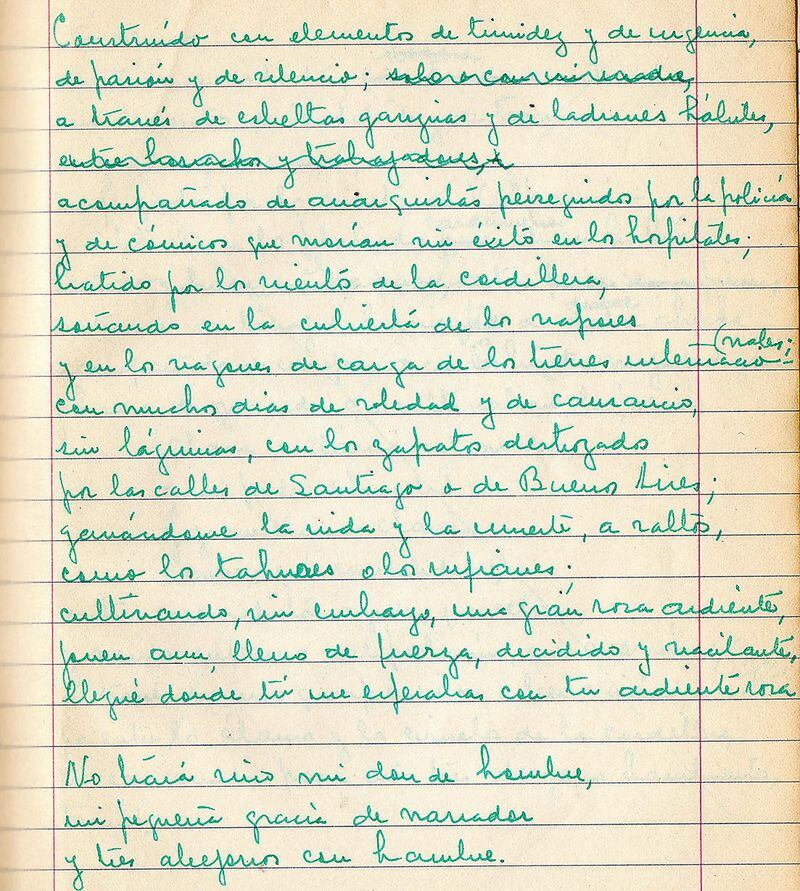 Construído con elementos de timidez y de urgencia,
de pasión y de silencio;
a través de esbeltas ganzúas y de ladrones hábiles,
entre borrachos y trabajadores,
acompañado de anarquistas perseguidos por la policía
y de cómicos que morían sin éxito en los hospitales;
batido por los vientos de la cordillera,
soñando en la cubierta de los vapores
y en los vagones de carga de los trenes internacio-
(nales;
con muchos dias de soledad y de cansancio,
sin lágrimas, con los zapatos destrozados
por las calles de Santiago o de Buenos Aires;
ganándome la vida y la muerte, a saltos,
como los tahures o los rufianes;
cultivando, sin embargo, una gran rosa ardiente,
joven aun, lleno de fuerza, decidido y vacilante,
llegué donde tú me esperabas con tu ardiente rosa
No traía sino mi don de hombre,
mi pequeña gracia de narrador
y tres abejorros con hambre.